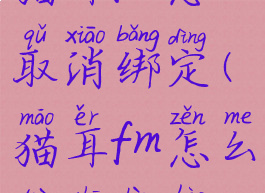 qǔ xiāo bǎng dìng
取消绑定(
māo ěr zěn me
猫耳fm怎么